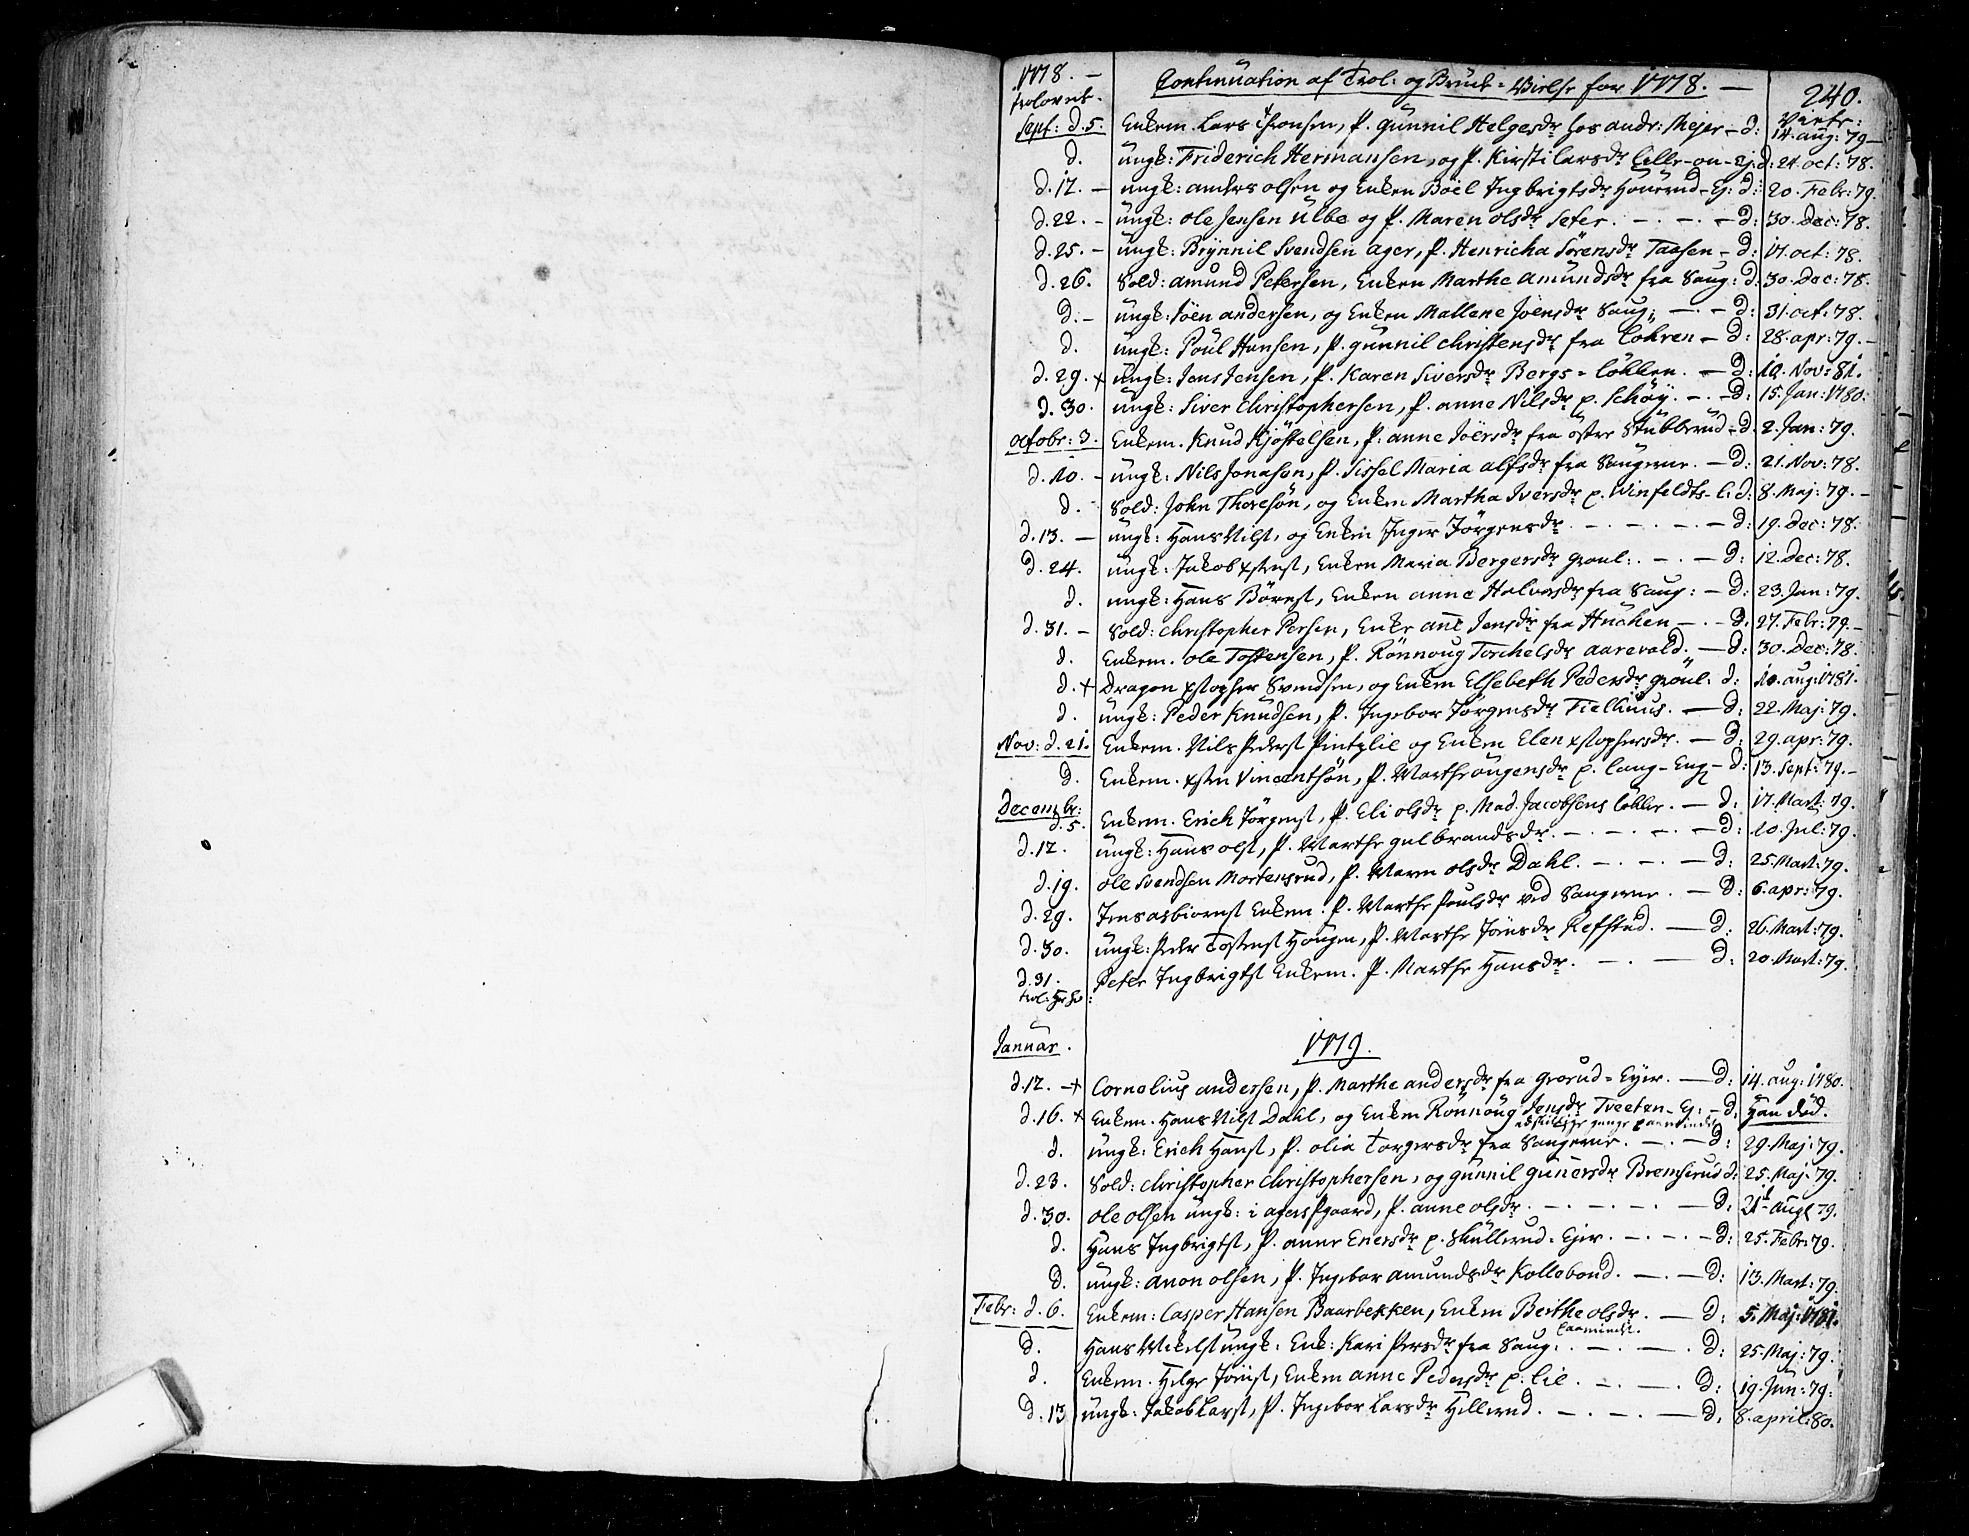 1778. — Continuation af Trol: og Brude-Vielse for 1778. — 240.
trolovede. Viede:
Sept: d. 5. Enkem. Lars Thronsen, P. Gunnil Helgesdr hos Andr: Mejer — d: 14. aug: 79 —
d. ungk: Friderich Hermansen, og P. Kirsti Larsdr Lille-on-Ej: d: 24. oct: 78.
d. 12. — ungk: Anders Olsen og Enken Boel Ingbrigtsdr Houerud-Ej: d: 20. Febr: 79.
d. 22. — ungk: Ole Jensen Ulbo og P. Maren Olsdr Seter. — . — . — d: 30. Dec: 78.
d. 25. — ungk: Brynnil Svendsen Ager, P. Henricha Sörensdr Taasen — d: 17. oct: 78.
d. 26. Sold: Amund Petersen, Enken Marthe Amundsdr fra Saug: d: 30. Dec: 78.
d. — ungk: Joen Andersen, og Enken Mallene Joensdr Saug: — . — d: 31. oct: 78.
d. ungk: Poul Hansen, P. Gunnil Christensdr fra Lokren — d: 28. apr: 79. —
d. 29. + ungk: Jens Jensen, P. Karen Siversdr Bergs-Lökken. — d: 10. Nov: 81.
d. 30. ungk: Siver Christophersen, P. Anne Nilsdr p. Schöy. — . — d: 15. Jan: 1780.
Octobr: 3. Enkem. Knud Kjöstelsen, P. Anne Joersdr fra östre Stubberud — d. 2. Jan: 79.
d. 10. — ungk: Nils Jonasen, P. Sissel Maria Alfsdr fra Saugerne. — d: 21. Nov: 78.
d. Sold: John Thoresön, og Enken Martha Iversdr p. Winfeldts-L: d. 8. Maj: 79. —
d. 13. — ungk: Hans Nilst, og Enken Inger Jörgensdr. — . — . — . — d: 19. Dec: 78.
d. 24. ungk: Jakob Xstenst, Enken Maria Bergersdr Grönl: . — . — d: 12. Dec: 78.
d. ungk: Hans Börest, Enken Anne Halvorsdr fra Saug: — d: 23. Jan: 79.
d. 31. — Sold: Christopher Persen, Enke Ane Jensdr fra Huchen — . — d. 27. Febr: 79. —
d. Enkem. Ole Tostensen, P. Rönnoug Torchelsdr Aarevold. — d: 30. Dec: 78.
d. + Dragon Xstopher Svendsen, og Enken Elsebeth Pedersdr Grönl. d: 10. aug: 1781.
d. ungk: Peder Knudsen, P. Ingebor Jörgensdr Tielhuus. — d: 22. Maj: 79.
Nov: d. 21. Enkem. Nils Pederst Pintzlie og Enken Elen Xstophersdr. — d: 29. apr: 79.
d. Enkem. Xsten Vincentsön, P. Marthe Ougensdr p. Lang-Eng — d: 13. Sept: 79. —
Decembr:
d. 5. Enkem. Erich Jörgenst, P. Eli Olsdr p. Mad. Jacobsens Lökke. — d: 17. Mart: 79.
d. 12. ungk: Hans Olst, P. Marthe Gulbrandsdr. — . — . — . — d: 10. Jul: 79.
d. 19. Ole Svendsen Mortensrud, P. Maren Olsdr Dahl. — . — . — d: 25. Mart: 79.
d. 29. Jens Asbiornst Enkem. P. Marthe Poulsdr ved Saugerne. — d: 6. apr: 79.
d. 30. ungk: Peder Tostenst Hougen, P. Marthe Jörnsdr Refstad. — d: 26. Mart: 79.
d. 31. Peter Ingbrigtst Enkem. P. Marthe Hansdr. — . — d: 20. Mart: 79.
Januar. 1779.
d. 12. — + Cornelius Andersen, P. Marthe Andersdr fra Grorud-Eyer. — d: 14. aug: 1780.
d. 16. + Enkem. Hans Nilst Dahl, og Enken Rönnoug Jensdr Tveeten-Ej: — d: Han död.
d. ungk: Erich Hanst, P. Olia Torgersdr fra Saugerne. — . — d: 29. Maj: 79.
d. 23. Sold: Christopher Christophersen, og Gunnil Gunersdr Bremserud d: 25. Maj: 79.
d. 30. Ole Olsen ungk: i Agers Pgaard, P. Anne Olsdr. — . — . — . — d: 21 Aug 79.
d. Hans Ingbrigtst, P. Anne Enersdr p. Skullerud-Ejer. — . — . — d: 25. Febr: 79.
d. ungk: Anon Olsen, P. Ingebor Amundsdr Kollebond. — . — d: 13. Mart: 79.
Febr: d. 6. Enkem: Casper Hansen Baarbekken, Enken Berthe Olsdr. — d: 5. Maj: 1781.
d. Hans Mikelst ungk: Enk: Kari Persdr fra Saug: . — . — . d: 25. Maj: 79.
d. Enkem. Helge Jörnst, Enken Anne Pedersdr p. Lie. — . — . d: 19. Jun: 79.
d. 13 ungk: Jakob Larst, P. Ingebor Larsdr Hellerud. — . — . — d. 8. april: 80.